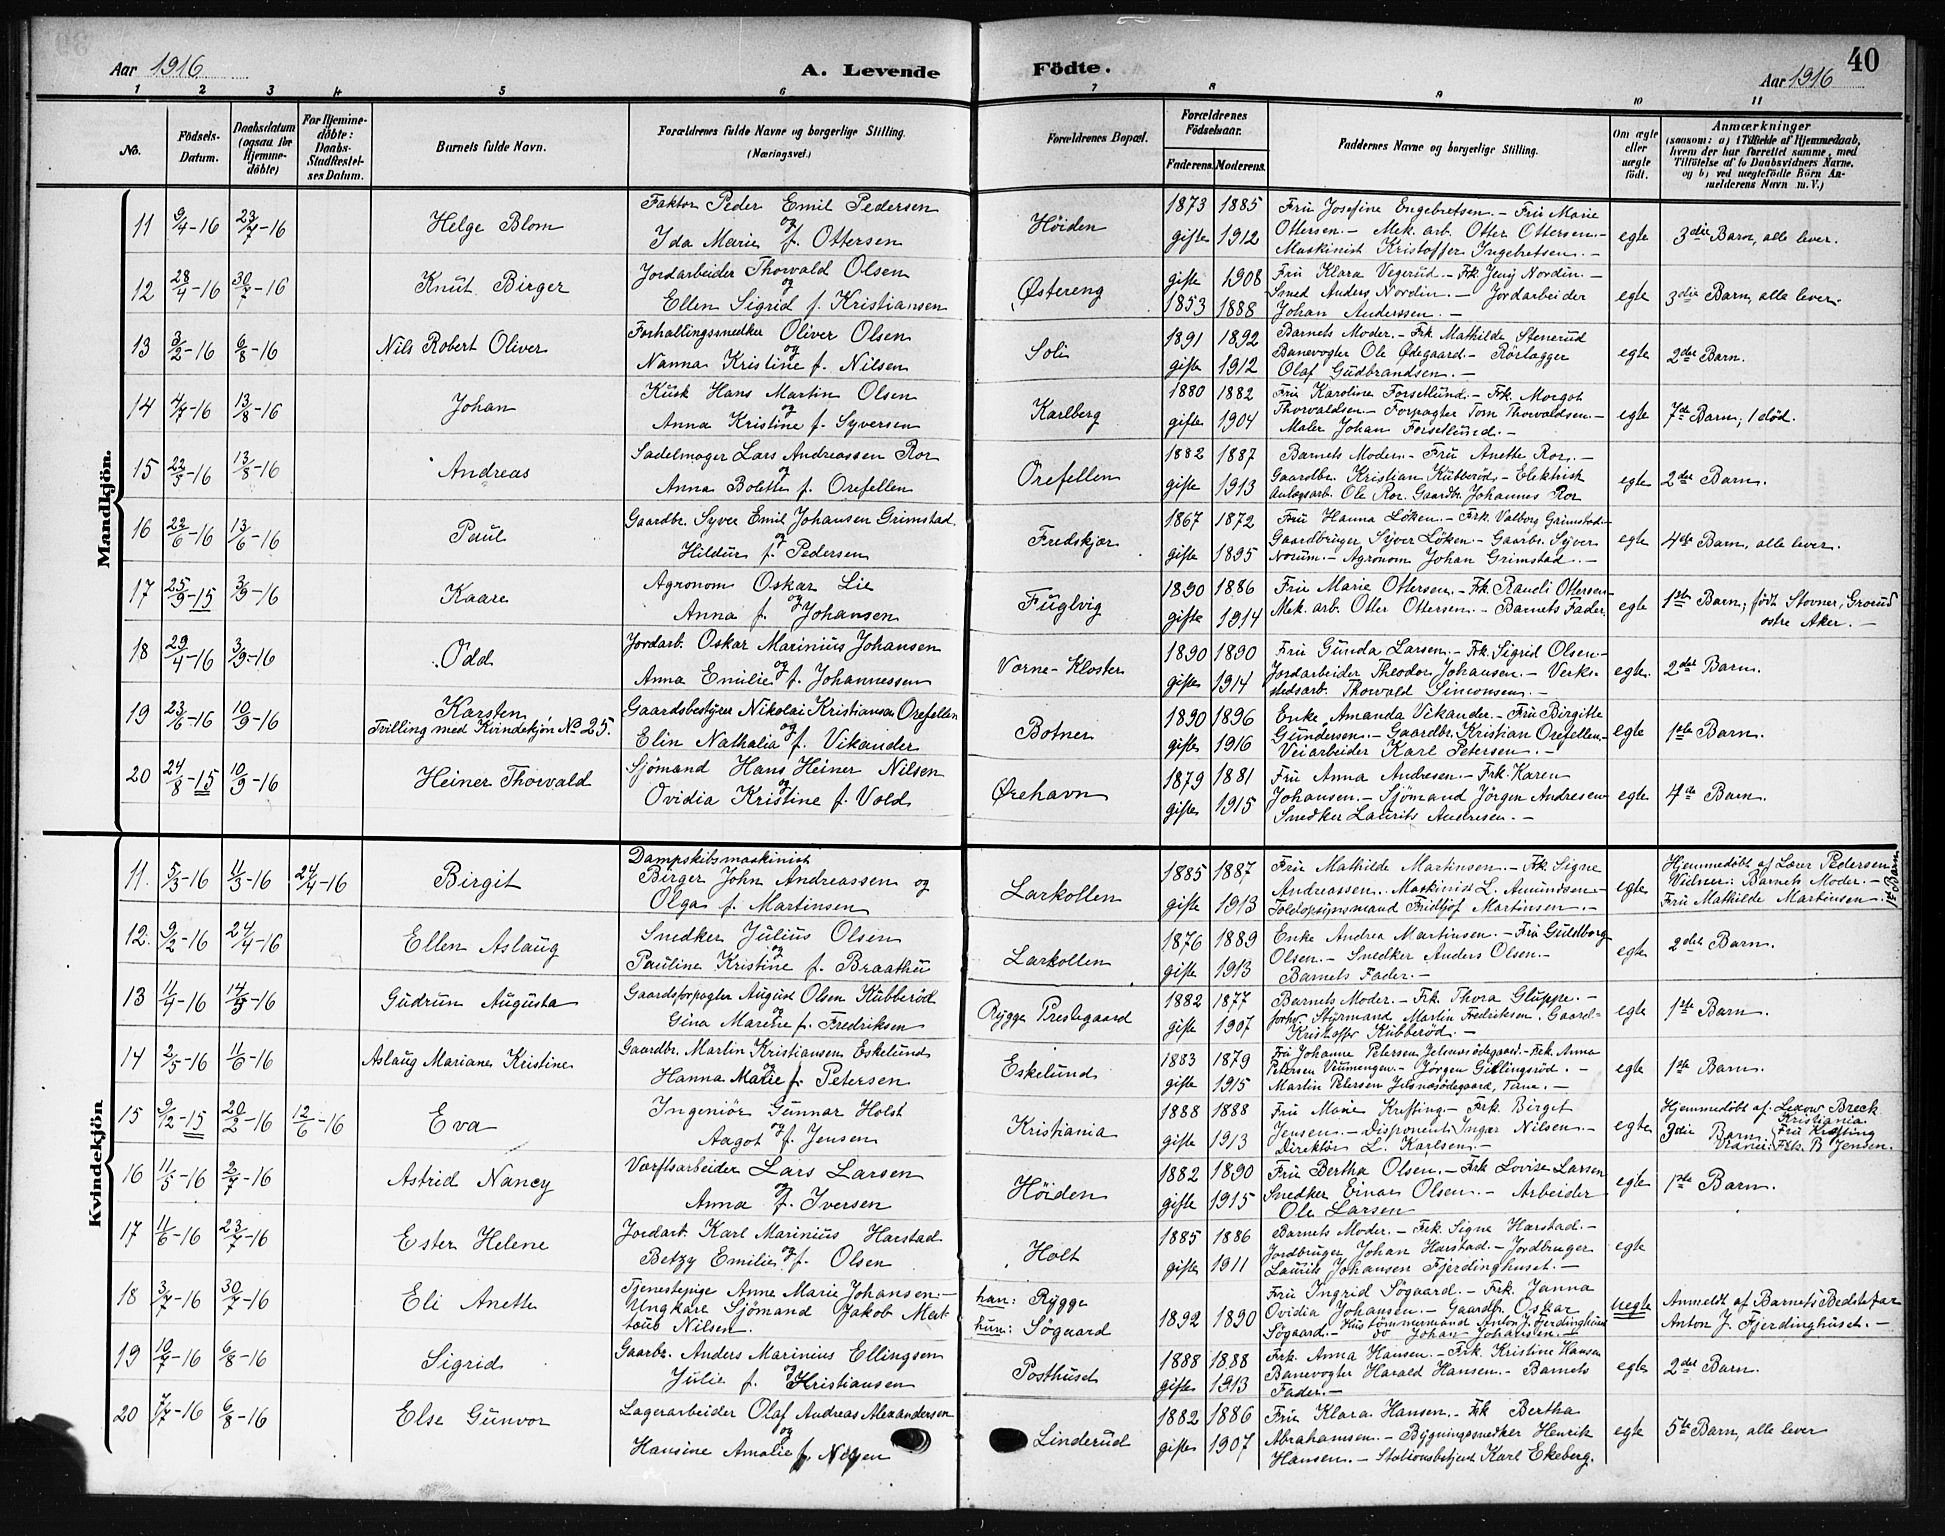 40
Aar 1916
A. Levende
Födte.
Aar 1916
1 2 3 4 5 6 7 8 9 10 11
No.
Födsels-
Datum.
Daabsdatum
(ogsaa for
Hjemme-
döbte)
For Hjemme-
döbte:
Daabs-
Stadfæstel-
ses Datum.
Barnets fulde Navn.
Forældrenes fulde Navne og borgerlige Stilling.
(Næringsvei.)
Forældrenes Bopæl.
Forældrenes
Födselsaar.
Faderens. Moderens.
Faddernes Navne og borgerlige Stilling.
Om ægte
eller
uægte
födt.
Anmærkninger
(saasom: a) i Tilfælde af Hjemmedaab,
hvem der har forrettet samme, med
Tilföielse af to Daabsvidners Navne,
og b) ved uægtefödte Börn An-
melderens Navn m. V.)
Mandkjön.
11 9/4-16 23/7-16 Helge Blom
Faktor Peder Emil Pedersen
og
Ida Marie f. Ottersen
Höiden
1873 1885
gifte 1912
Fru Josefine Engebretsen. - Fru Marie
Ottersen. - Mek. arb. Otter Ottersen. -
Maskinist Kristoffer Ingebretsen. -
egte
3die Barn, alle lever.
12 28/4-16 30/7-16 Knut Birger
Jordarbeider Thorvald Olsen
og
Ellen Sigrid f. Kristiansen
Østereng
gifte 1908
1853 1888
Fru Klara Vegerud. - Frk. Jenny Nordin. -
Smed Anders Nordin. - Jordarbeider
Johan Anderssen. -
egte
3die Barn, alle lever.
13 3/2-16 6/8-16 Nils Robert Oliver
Forhallingssmedker Oliver Olsen
og
Nanna Kristine f. Nilsen
Soli
1891 1892
gifte 1912
Barnets Moder. - Frk. Mathilde Stenerud
Banevogter Ole Ødegaard. - Rörlægger
Olaf Gudbrandsen. -
egte
2det Barn.
14 4/7-16 13/8-16 Johan
Kusk Hans Martin Olsen
og
Anna Kristine f. Syversen
Karlberg
1880 1882
gifte 1904
Fru Karoline Forsetlund. - Frk. Margot
Thorvaldsen. - Forpagter Tom Thorvaldsen. -
Maler Johan Forsetlund. -
egte
7de Barn, 1 död.
15 22/5-16 13/8-16 Andreas
Sadelmager Lars Andreassen Ror
og
Anna Bolette f. Orefellen
Orefellen
1882 1887
gifte 1913
Barnets Moder. - Fru Anette Ror. -
Gaardbr. Kristian Kubberöd. - Elektrisk
Anlægsarb. Ole Ror. Gaardbr. Johannes Ror
egte
2det Barn.
16 22/6-16 13/6-16 Paul
Gaardbr. Syver Emil Johansen Grimstad
og
Hildur f. Pedersen
Fredskjær
1867 1872
gifte 1895
Fru Hanna Löken. - Frk. Valborg Grimstad. -
Gaardbruger Syver Löken. - Gaardbr. Syver
Norum. - Agronom Johan Grimstad. -
egte
4de Barn, alle lever.
17 25/9-15 3/9-16 Kaare
Agronom Oskar Lie
og
Anna f. Johansen
Fuglvig
1890 1886
gifte 1914
Fru Marie Ottersen. - Frk. Randi Ottersen
Mek. arb. Otter Ottersen. - Barnets Fader
egte
1ste Barn, födt Stovner, Grorud
østre Aker. -
18 29/4-16 3/9-16 Odd
Jordarb. Oskar Marinius Johansen
og
Anna Emilie f. Johannessen
Værne-Kloster
1890 1890
gifte 1914
Fru Gunda Larsen. - Frk. Sigrid Olsen -
Jordarbeider Theodor Johansen. - Verks-
stedsarb. Thorvald Simonsen. -
egte
2det Barn.
19 23/6-16 10/9-16 Karsten
Tvilling med Kvindekjön No 25.
Gaardsbestyrer Nikolai Kristiansen Orefellen
og
Elin Nathalia f. Vikander
Botner
1890 1896
gifte 1916
Enke Amanda Vikander. - Fru Birgitte
Gundersen. - Gaardbr. Kristian Orefellen. -
Veiarbeider Karl Petersen. -
egte
1ste Barn.
20 24/8-15 10/9-16 Heiner Thorvald
Sjömand Hans Heiner Nilsen
og
Ovidia Kristine f. Vold
Ørehavn
1879 1881
gifte 1915
Fru Anna Andresen. - Frk. Karen
Johansen. - Sjömand Jörgen Andresen
Snedker Laurits Andresen. -
egte
4de Barn.
Kvindekjön
11. 5/3-16 11/3-16 24/4-16 Birgit
Dampskibsmaskinist
Birger John Andreassen og
Olga f. Martinsen
Larkollen
1885 1887
gifte 1913
Fru Mathilde Martinsen. - Frk. Signe
Andreassen. Maskinist L. Amundsen -
Toldopsynsmand Fridtjof Martinsen. -
egte
Hjemmedöbt af Lærer Pedersen
Vidner: Barnets Moder. -
Fru Mathilde Martinsen. 1st Barn
12. 9/2-16 24/4-16 Ellen Aslaug
Snedker Julius Olsen
og
Pauline Kristine f. Braathu
Larkollen
1876 1889
gifte 1913
Enke Andrea Martinsen. - Fru Guldborg
Olsen. - Snedker Anders Olsen. -
Barnets Fader. -
egte
2det Barn.
13 11/4-16 14/5-16 Gudrun Augusta
Gaardsforpagter August Olsen Kubberöd
og
Gina Marene f. Fredriksen
Rygge Prestegaard
1882 1877
gifte 1907
Barnets Moder. - Frk. Thora Gluppe. -
forhv. Styrmand Martin Fredriksen. Gaard-
Kristoffer Kubberöd. -
egte
1ste Barn.
14 2/5-16 11/6-16 Aslaug Mariane Kristine
Gaardbr. Martin Kristiansen Eskelund
og
Hanna Marie f. Petersen
Eskelund
1883 1879
gifte 1915
Fru Johanne Petersen Jelsnesödegaard. - Frk. Anna
Petersen Vrumengen. - Jörgen Gillingsröd. -
Martin Petersen Jelsnesödegaard, Tune. -
egte
1ste Barn.
15 9/12-15 20/2-16 12/6-16 Eva
Ingeniör Gunnar Holst
og
Aagot f. Jensen
Kristiania
1888 1888
gifte 1913
Fru Marie Krefting - Frk. Birget
Jensen. - Disponent Ingar Nilsen. -
Direktör L. Karlsen. -
egte
Hjemmedöbt af Lexow Breck
Kristiania
3die Barn Vidner: Fru Krefting
Frk. B. Jensen.
16 11/5-16 2/7-16 Astrid Nancy
Værftsarbeider Lars Larsen
og
Anna f. Iversen
Höiden
1882 1890
gifte 1915
Fru Bertha Olsen. - Frk Lovise Larsen
Snedker Einar Olsen. - Arbeider
Ole Larsen
egte
1ste Barn.
17 11/6-16 23/7-16 Ester Helene
Jordarb. Karl Marinius Harstad
og
Betzy Emilie f. Olsen
Holt
1885 1886
gifte 1911
Barnets Moder. - Frk. Signe Harstad. -
Jordbruger Johan Harstad. - Jordbruger
Laurits Johansen Fjerdinghuset. -
egte
18 3/7-16 30/7-16 Eli Anette
Tjenestepige Anne Marie Johansen. -
Ungkare Sjömand Jakob Mat-
tæus Nilsen.
han: Rygge
hun: Søgaard
1892 1890
Fru Ingrid Sögaard. - Frk. Janna
Ovidia Johansen. - Gaardbr. Oskar
Sögaard. - Hustömmermand Anton J. Fjerdinghuset
do Johan Johansen. -
uegte
Anmeldt af Barnets Bedstefar
Anton J. Fjerdinghuset. -
19 10/7-16 6/8-16 Sigrid
Gaarbr. Anders Marinius Ellingsen
og
Julie f. Kristiansen
Posthuset
1888 1888
gifte 1913
Frk. Anna Hansen. - Frk. Kristine Hansen
Banevogter Harald Hansen. - Barnets
Fader. -
egte
2det Barn.
20 7/7-16 6/8-16 Else Gunvor
Lagerarbeider Olaf Andreas Alexandersen
og
Hansine Amalie f. Nilsen
Linderud
1882 1886
gifte 1907
Fru Klara Hansen. - Frk Bertha
Abrahamsen. - Bygningssnedker Henrik
Hansen. - Stationsbetjent Karl Ekeberg.
egte
5te Barn, alle lever